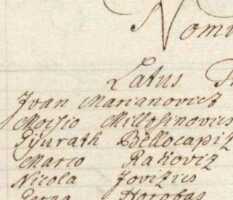 Nomi
Latus
Ivan Marianovich
Moisio Millosinovich
Gjurath Bellocapit
Marco Rakoviz
Nicola Jovizies